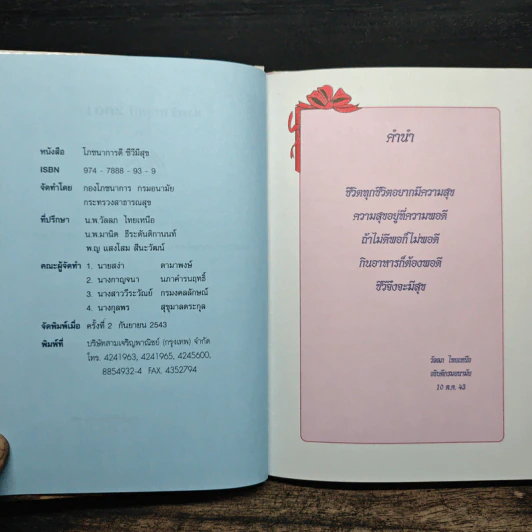 หนังสือ โภชนาการดี ชีวีมีสุข
ISBN 974 - 7888 - 93 - 9
จัดทำโดย กองโภชนาการ กรมอนามัย
กระทรวงสาธารณสุข
ที่ปรึกษา น.พ.วัลลภ ไทยเหนือ
น.พ.มานิต ธีระตันติกานนท์
พ.ญ แสงโสม สีนะวัฒน์
คณะผู้จัดทำ 1. นายสง่า ดามาพงษ์
2. นางกาญจนา นภาคำรนฤทธิ์
3. นางสาววีระวัณย์ กรมงคลลักษณ์
4. นางกุลพร สุขุมาลตระกูล
จัดพิมพ์เมื่อ ครั้งที่ 2 กันยายน 2543
พิมพ์ที่ บริษัทสามเจริญพาณิชย์ (กรุงเทพ) จำกัด
โทร. 4241963, 4241965, 4245600,
8854932-4 FAX. 4352794
คำนำ
ชีวิตทุกชีวิตอยากมีความสุข
ความสุขอยู่ที่ความพอดี
ถ้าไม่ดีพอก็ไม่พอดี
กินอาหารก็ต้องพอดี
ชีวีจึงจะมีสุข
วัลลภ ไทยเหนือ
อธิบดีกรมอนามัย
10 ต.ค. 43